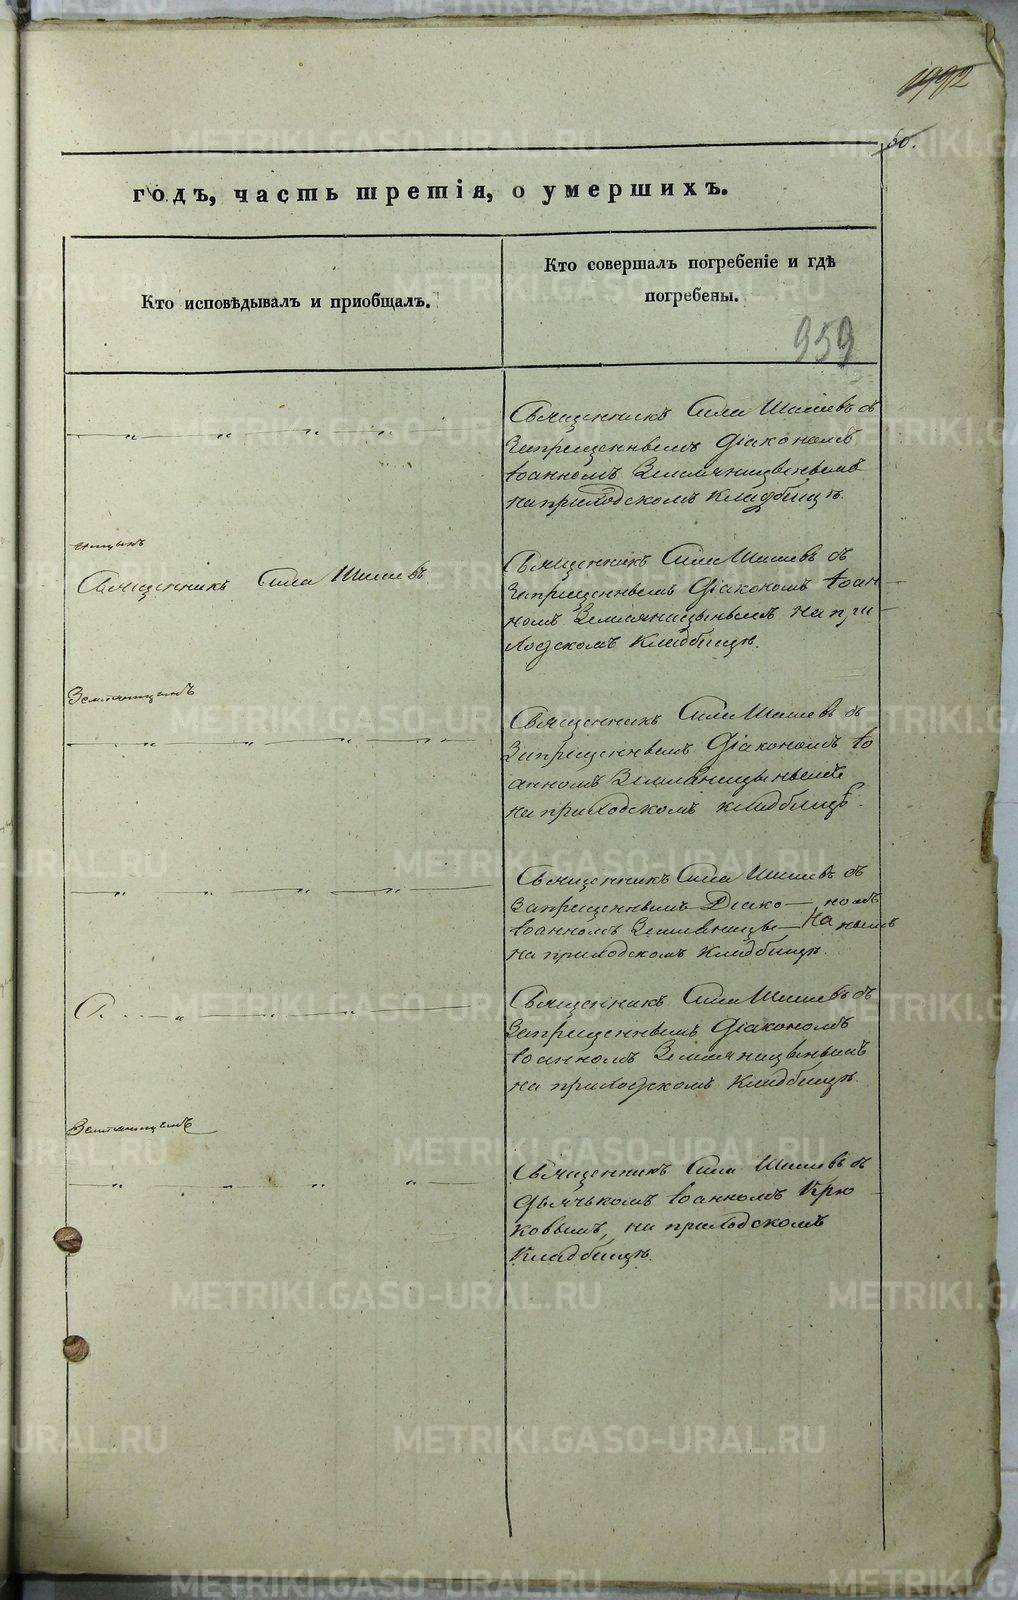 1992
60.
годъ, часть третія, о умершихъ.
Кто исповѣдывалъ и приобщалъ.
Кто совершалъ погребеніе и гдѣ
погребены.
959
Священникъ Сила Шишевъ съ
Запрещеннымъ Діакономъ
Іоанномъ Земляницынымъ
на приходскомъ кладбищѣ.
Священникъ Сила Шишевъ
Священникъ Сила Шишевъ съ
Запрещеннымъ Діакономъ Іоан
номъ Земляницынымъ на при
ходскомъ кладбищѣ.
Земляницынъ
Священникъ Сила Шишевъ съ
Запрещеннымъ Діакономъ Іо
анномъ Земляницынымъ
на приходскомъ кладбищѣ.
Священникъ Сила Шишевъ съ
Запрещеннымъ Діако— номъ
Іоанномъ Земляницы— нымъ
на приходскомъ кладбищѣ.
Священникъ Сила Шишевъ съ
Запрещеннымъ Діакономъ
Іоанномъ Земляницынымъ
на приходскомъ кладбищѣ.
Священникъ Сила Шишевъ съ
дьячькомъ Іоанномъ Крю
ковымъ, на приходскомъ
кладбищѣ.
METRIKI.GASO-URAL.RU